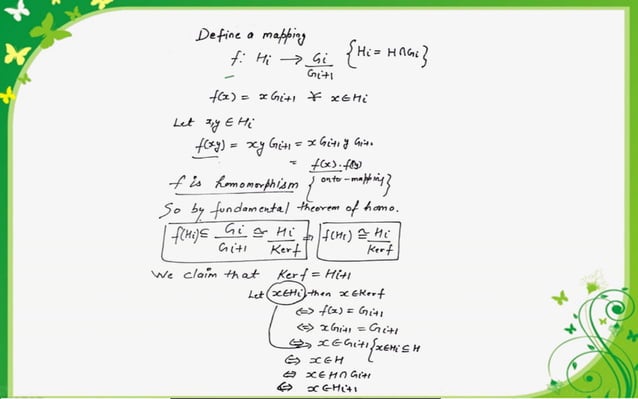 Define a mapping
f: Hi → Gi/Gi+1 {Hi = H∩Gi}
f(x) = x Gi+1 ∀ x∈Hi
Let x,y ∈ Hi
f(xy) = xy Gi+1 = x Gi+1 y Gi+1
= f(x).f(y)
f is homomorphism {onto-mapping}
So by fundamental theorem of homo.
f(Hi) ⊆ Gi/Gi+1 ≅ Hi/Kerf ⇒ f(Hi) ≅ Hi/Kerf
We claim that Kerf = Hi+1
Let x∈Hi, then x∈Kerf
⇔ f(x) = Gi+1
⇔ xGi+1 = Gi+1
⇔ x∈Gi+1 {x∈Hi⊆H
⇔ x∈H
⇔ x∈H∩Gi+1
⇔ x∈Hi+1